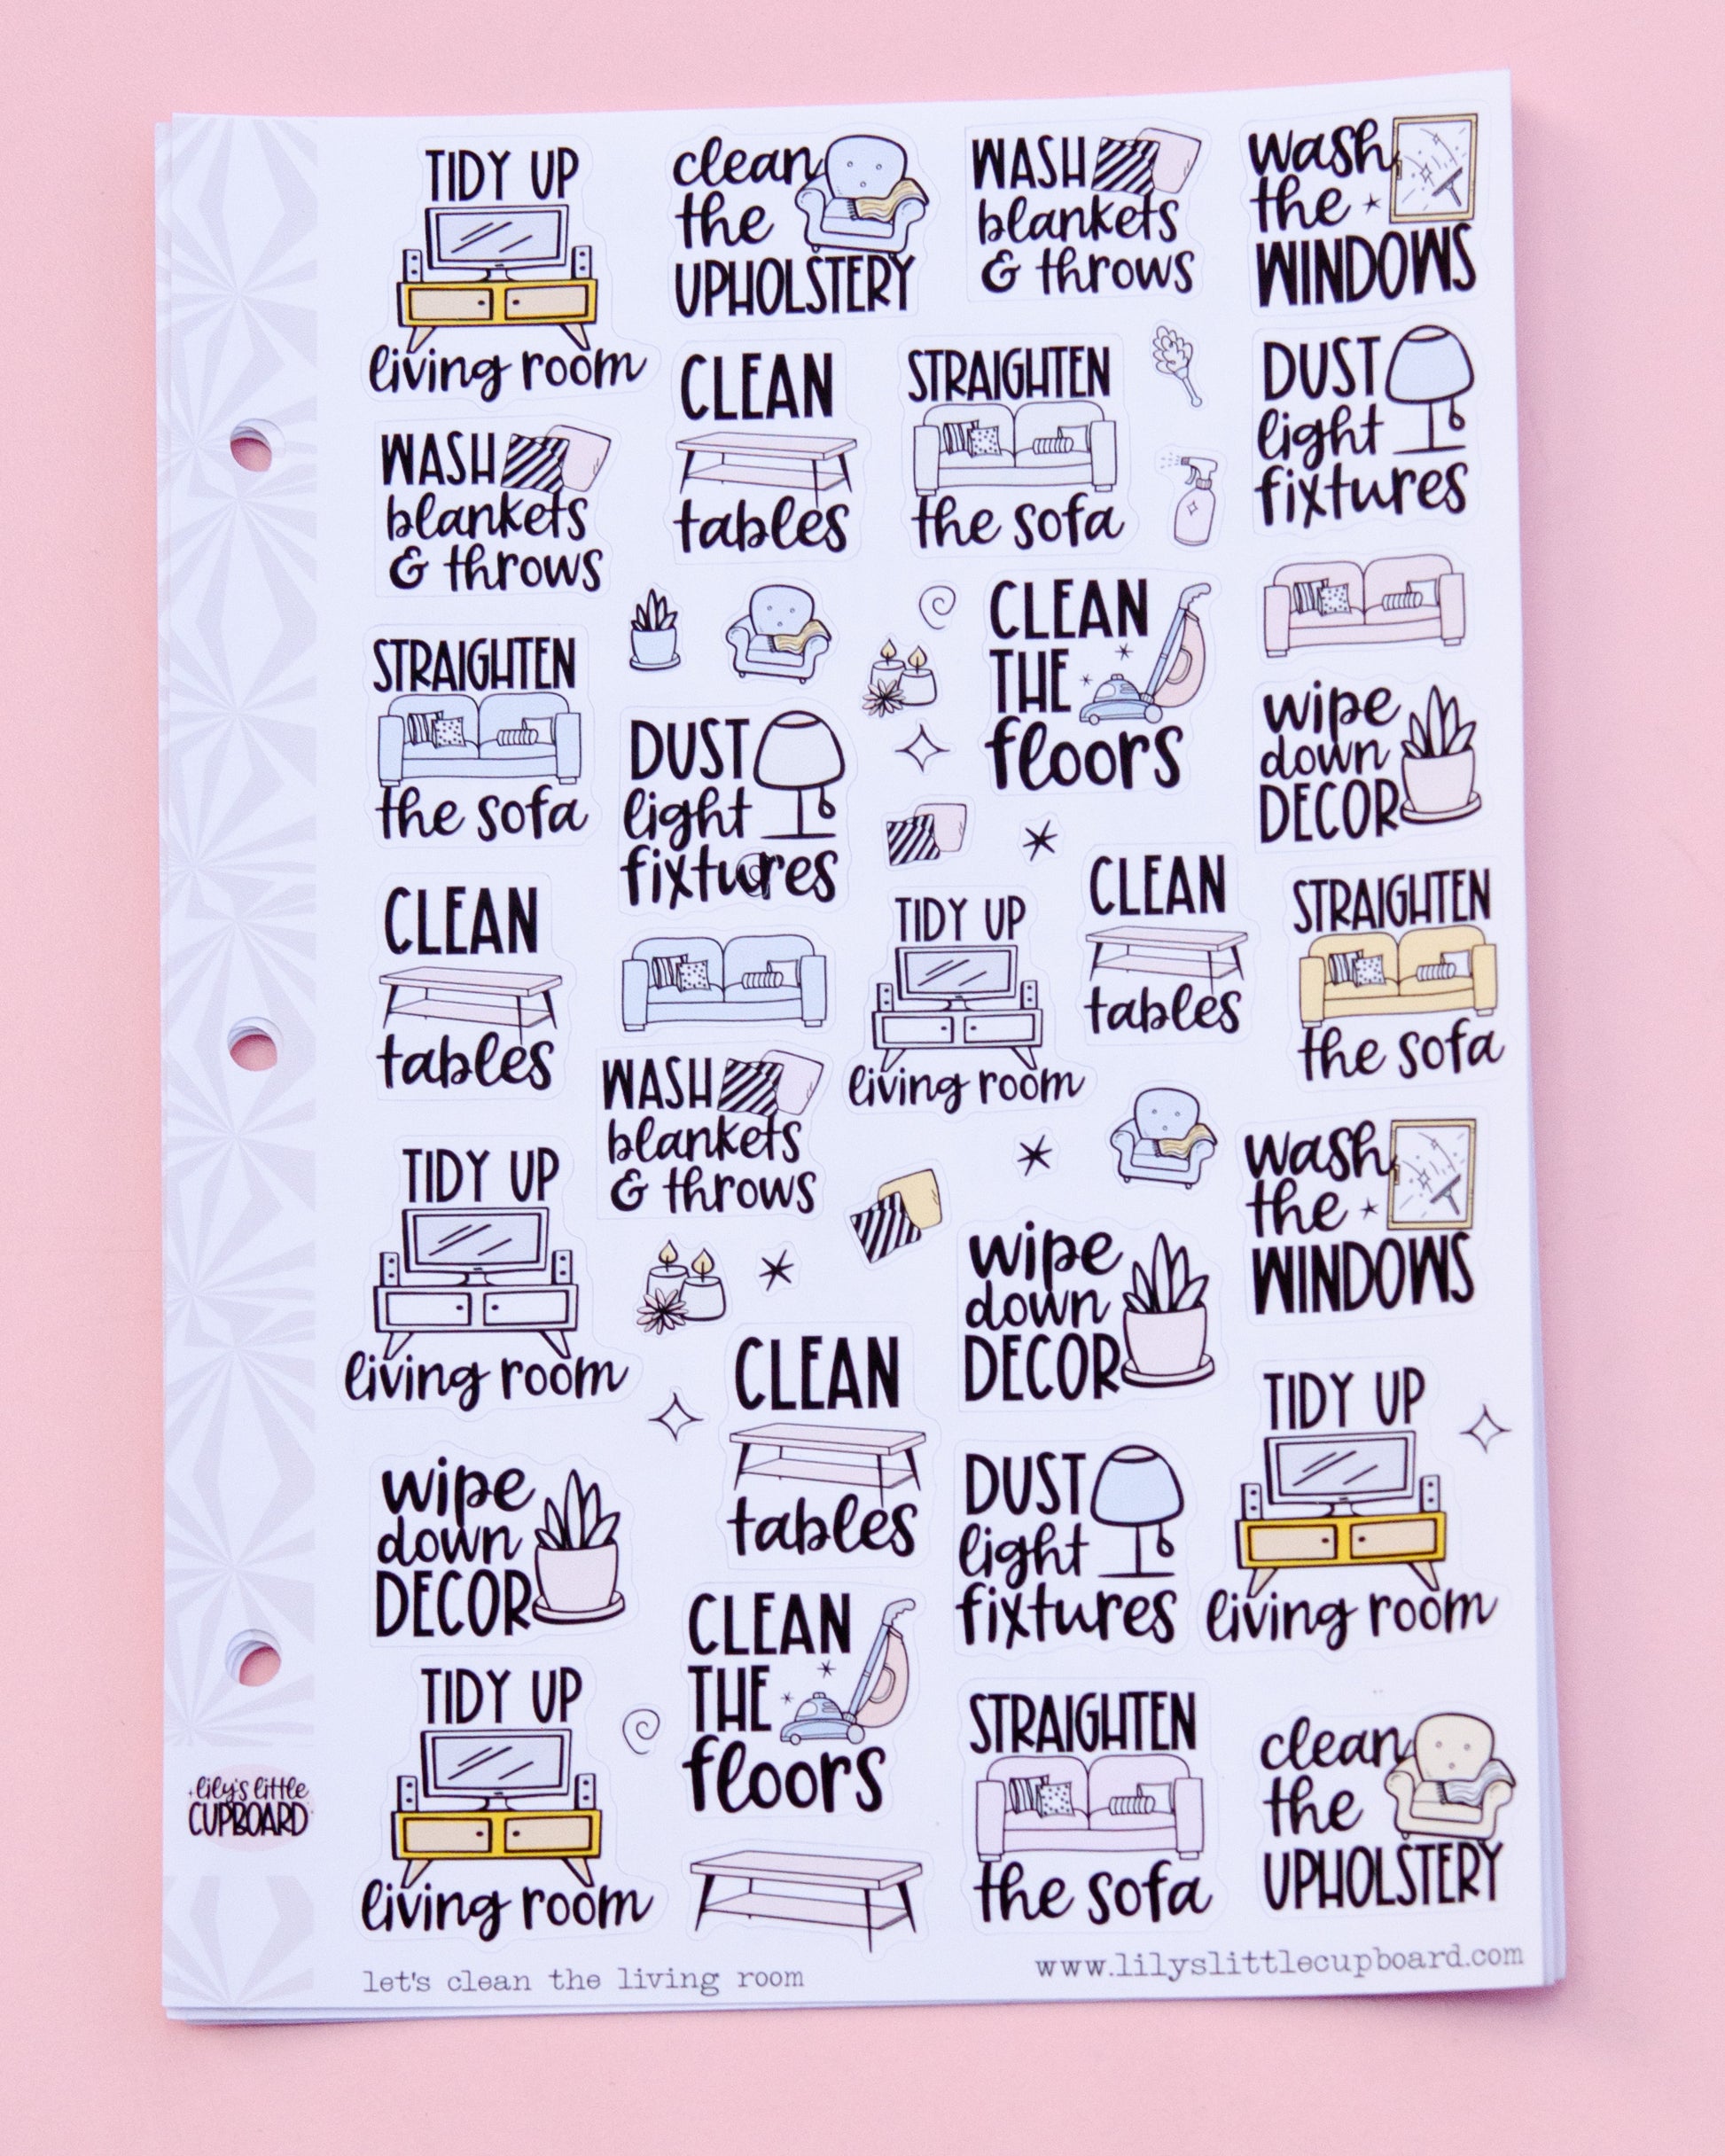 TIDY UP
living room
clean
the
UPHOLSTERY
WASH
blankets
& throws
wash
the
WINDOWS
WASH
blankets
& throws
CLEAN
tables
STRAIGHTEN
the sofa
DUST
light
fixtures
STRAIGHTEN
the sofa
DUST
light
fixtures
CLEAN
THE
floors
wipe
down
DECOR
CLEAN
tables
TIDY UP
living room
CLEAN
tables
STRAIGHTEN
the sofa
WASH
blankets
& throws
TIDY UP
living room
wipe
down
DECOR
wash
the
WINDOWS
CLEAN
tables
wipe
down
DECOR
DUST
light
fixtures
TIDY UP
living room
TIDY UP
living room
CLEAN
THE
floors
STRAIGHTEN
the sofa
clean
the
UPHOLSTERY
lily's little
CUPBOARD
let's clean the living room
www.lilyslittlecupboard.com